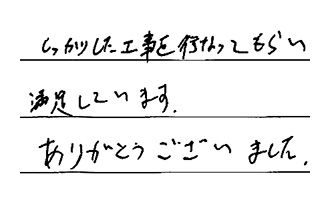 しっかりした工事を行なってもらい
満足しています.
ありがとうございました.